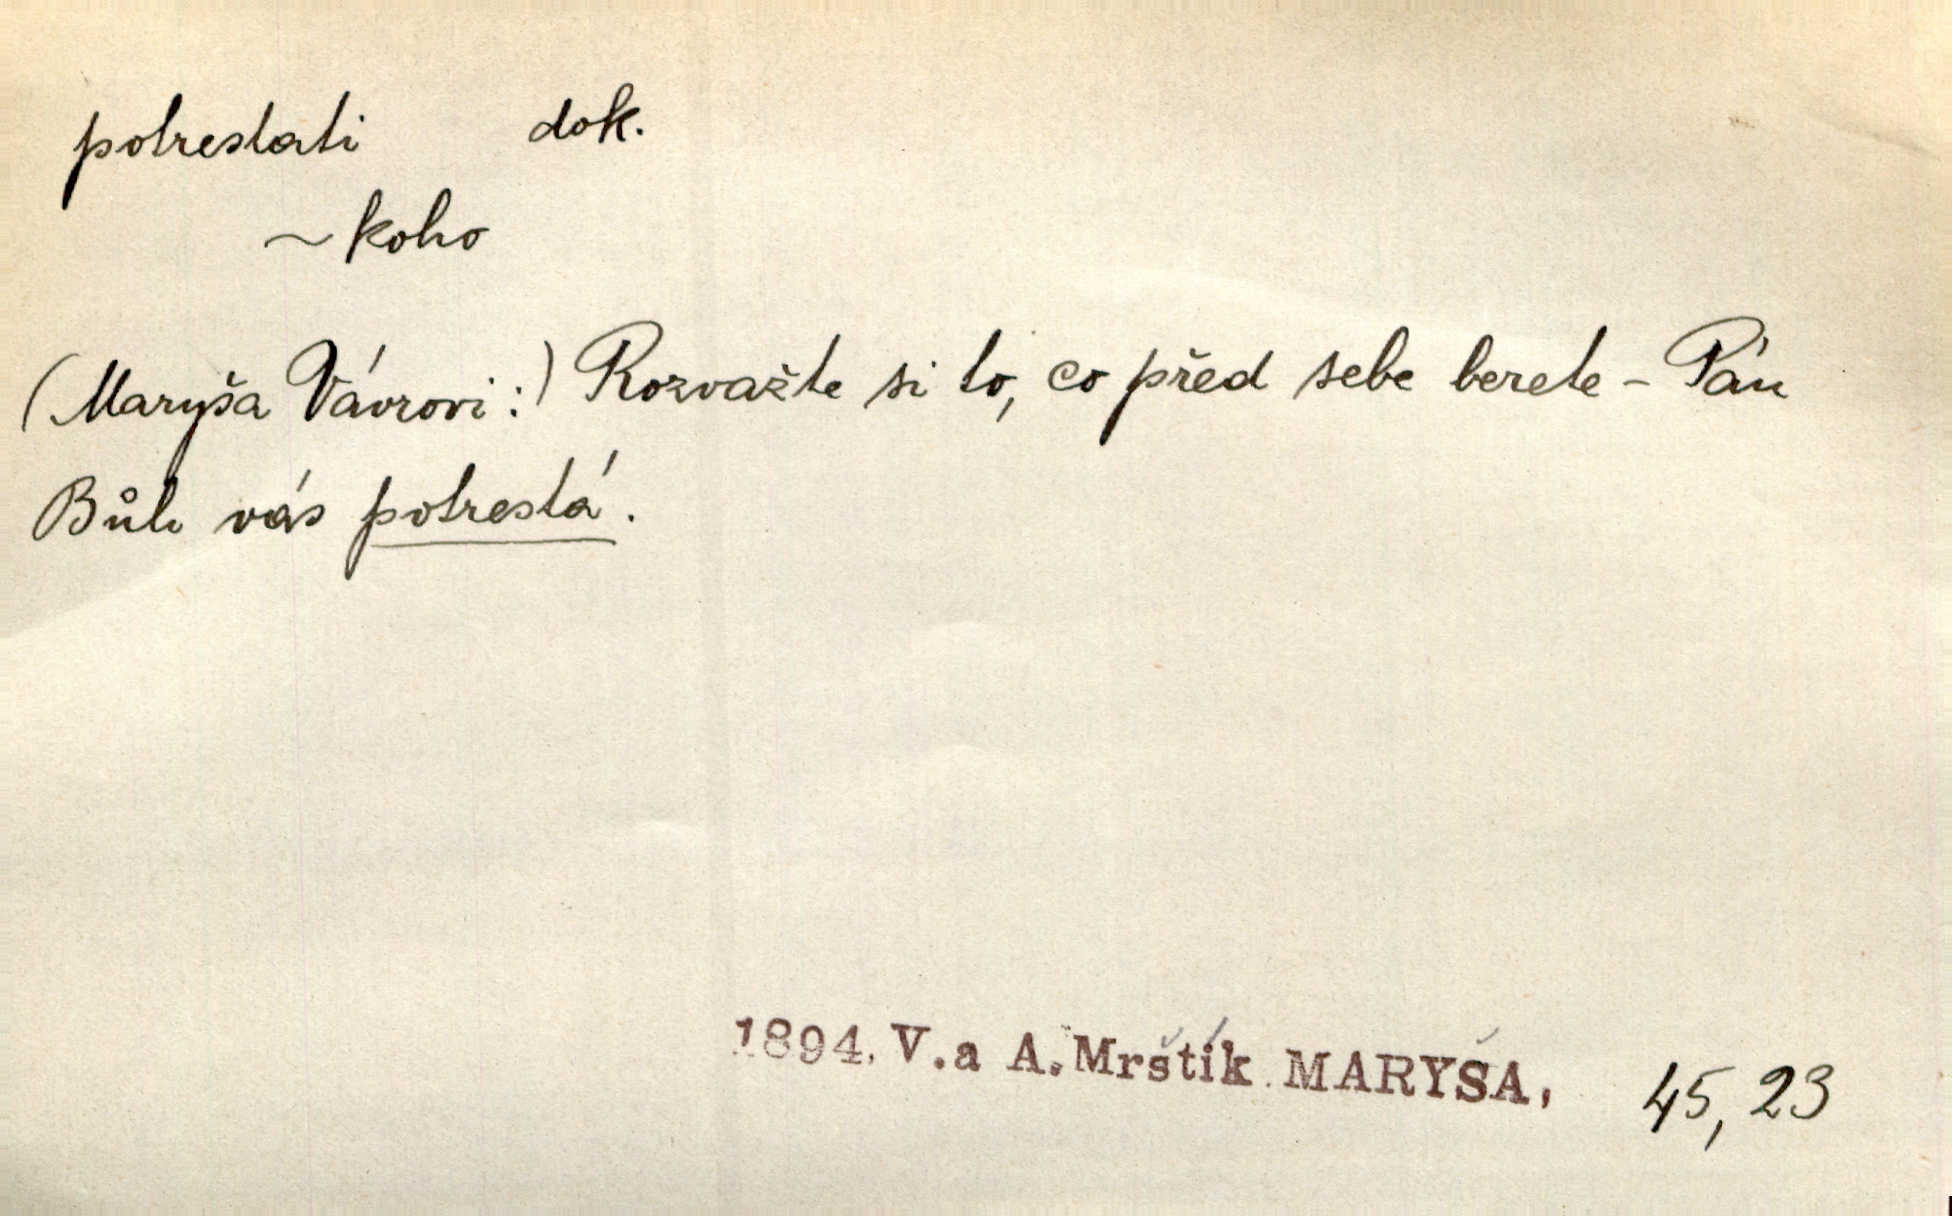 potrestati dok.
~ koho
(Maryša Vávrovi:) Rozvažte si to, co před sebe berete – Pán
Bůh vás potrestá.
1894. V. a A. Mrštík MARYŠA, 45, 23